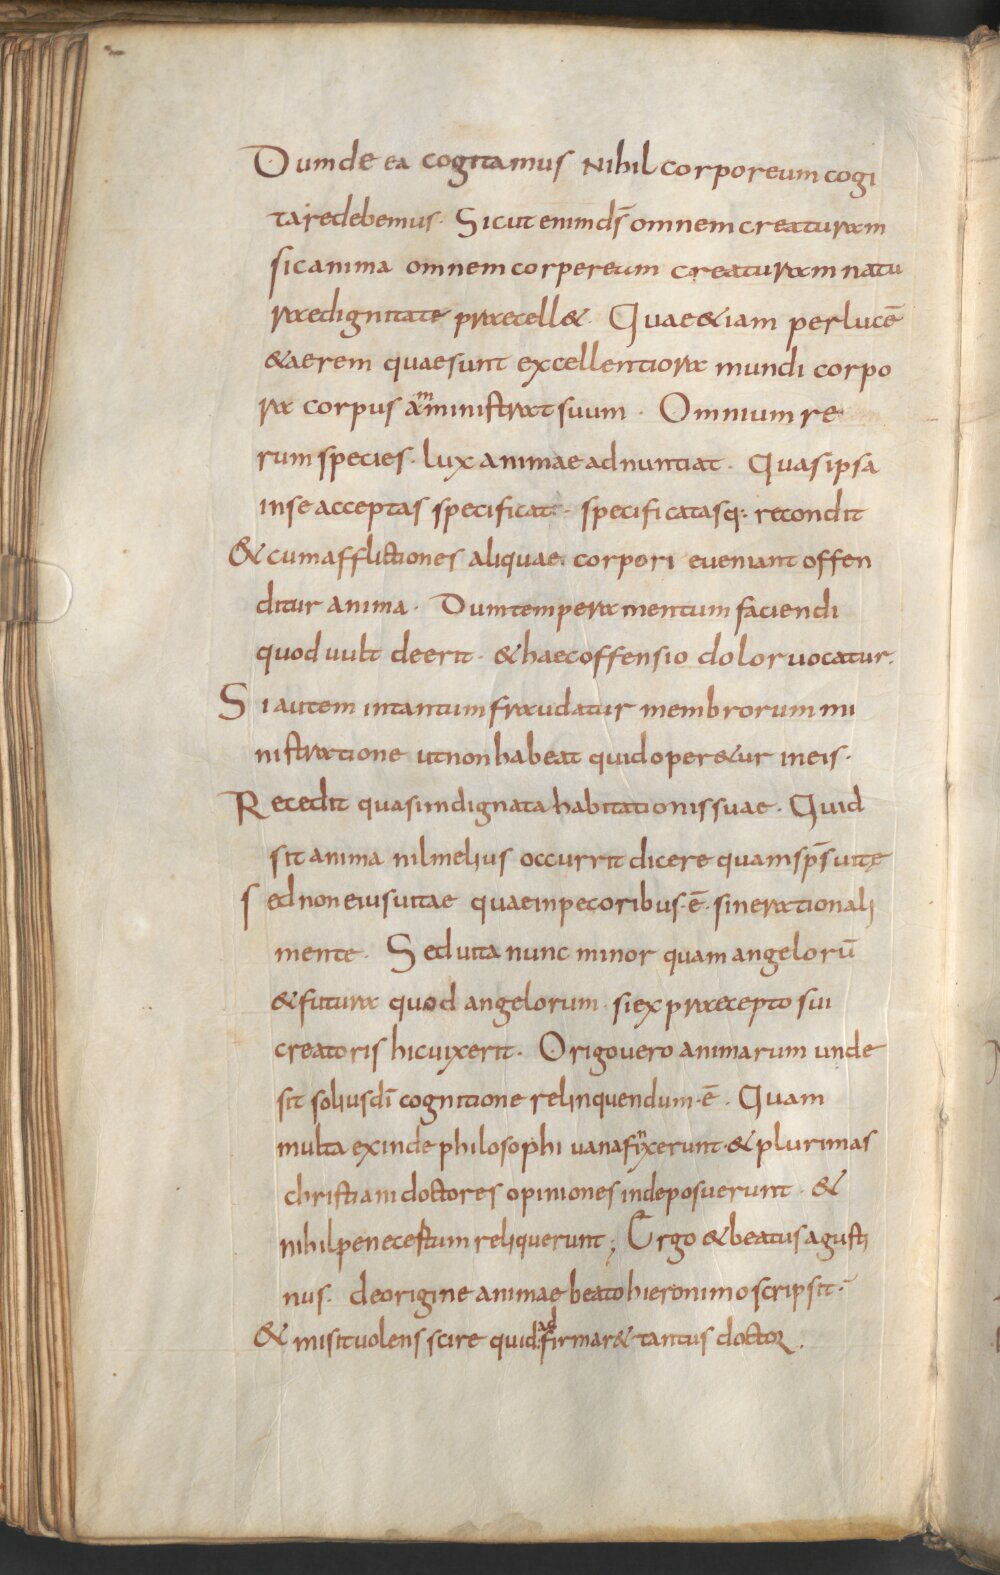 Dum de ea cogitamus nihil corporeum cogi
tare debemus. Sicut enim ds̄ omnem creaturam
sic anima omnem corpereum creaturam natu
rae dignitate praecell&. Quae &iam per lucē
& aerem quae sunt excellentiora mundi corpo
ra corpus amministrat suum. Omnium re
rum species. lux animae adnuntiat. Quas ipsa
in se acceptas specificat. specificatasq: recondit
& cum afflictiones aliquae corpori eveniant offen
ditur anima. Dum temperamentum faciendi
quod vult deerit. & haec offensio dolor vocatur.
Si autem in tantum fraudatur membrorum mi
nistratione ut non habeat quid oper&ur in eis.
Recedit quasi indignata habitationis suae. Quid
sit anima nil melius occurrit dicere quam sps̄ vitę
sed non eius vitae quae in pecoribus. ē. sine rationali
mente. Sed vita nunc minor quam angelorū
& futura quod angelorum. si ex praecepto sui
creatoris hic vixerit. Origo vero animarum unde
sit solius dī cognitione relinquendum. ē. Quam
multa exinde philosophi vana finxerunt. & plurimas
christiani doctores opiniones inde posuerunt. &
nihil pene certum reliquerunt; Ergo & beatus agusti
nus. de origine animae beato hieronimo scripsit.
& misit volens scire quid adfirmar& tantus doctor.